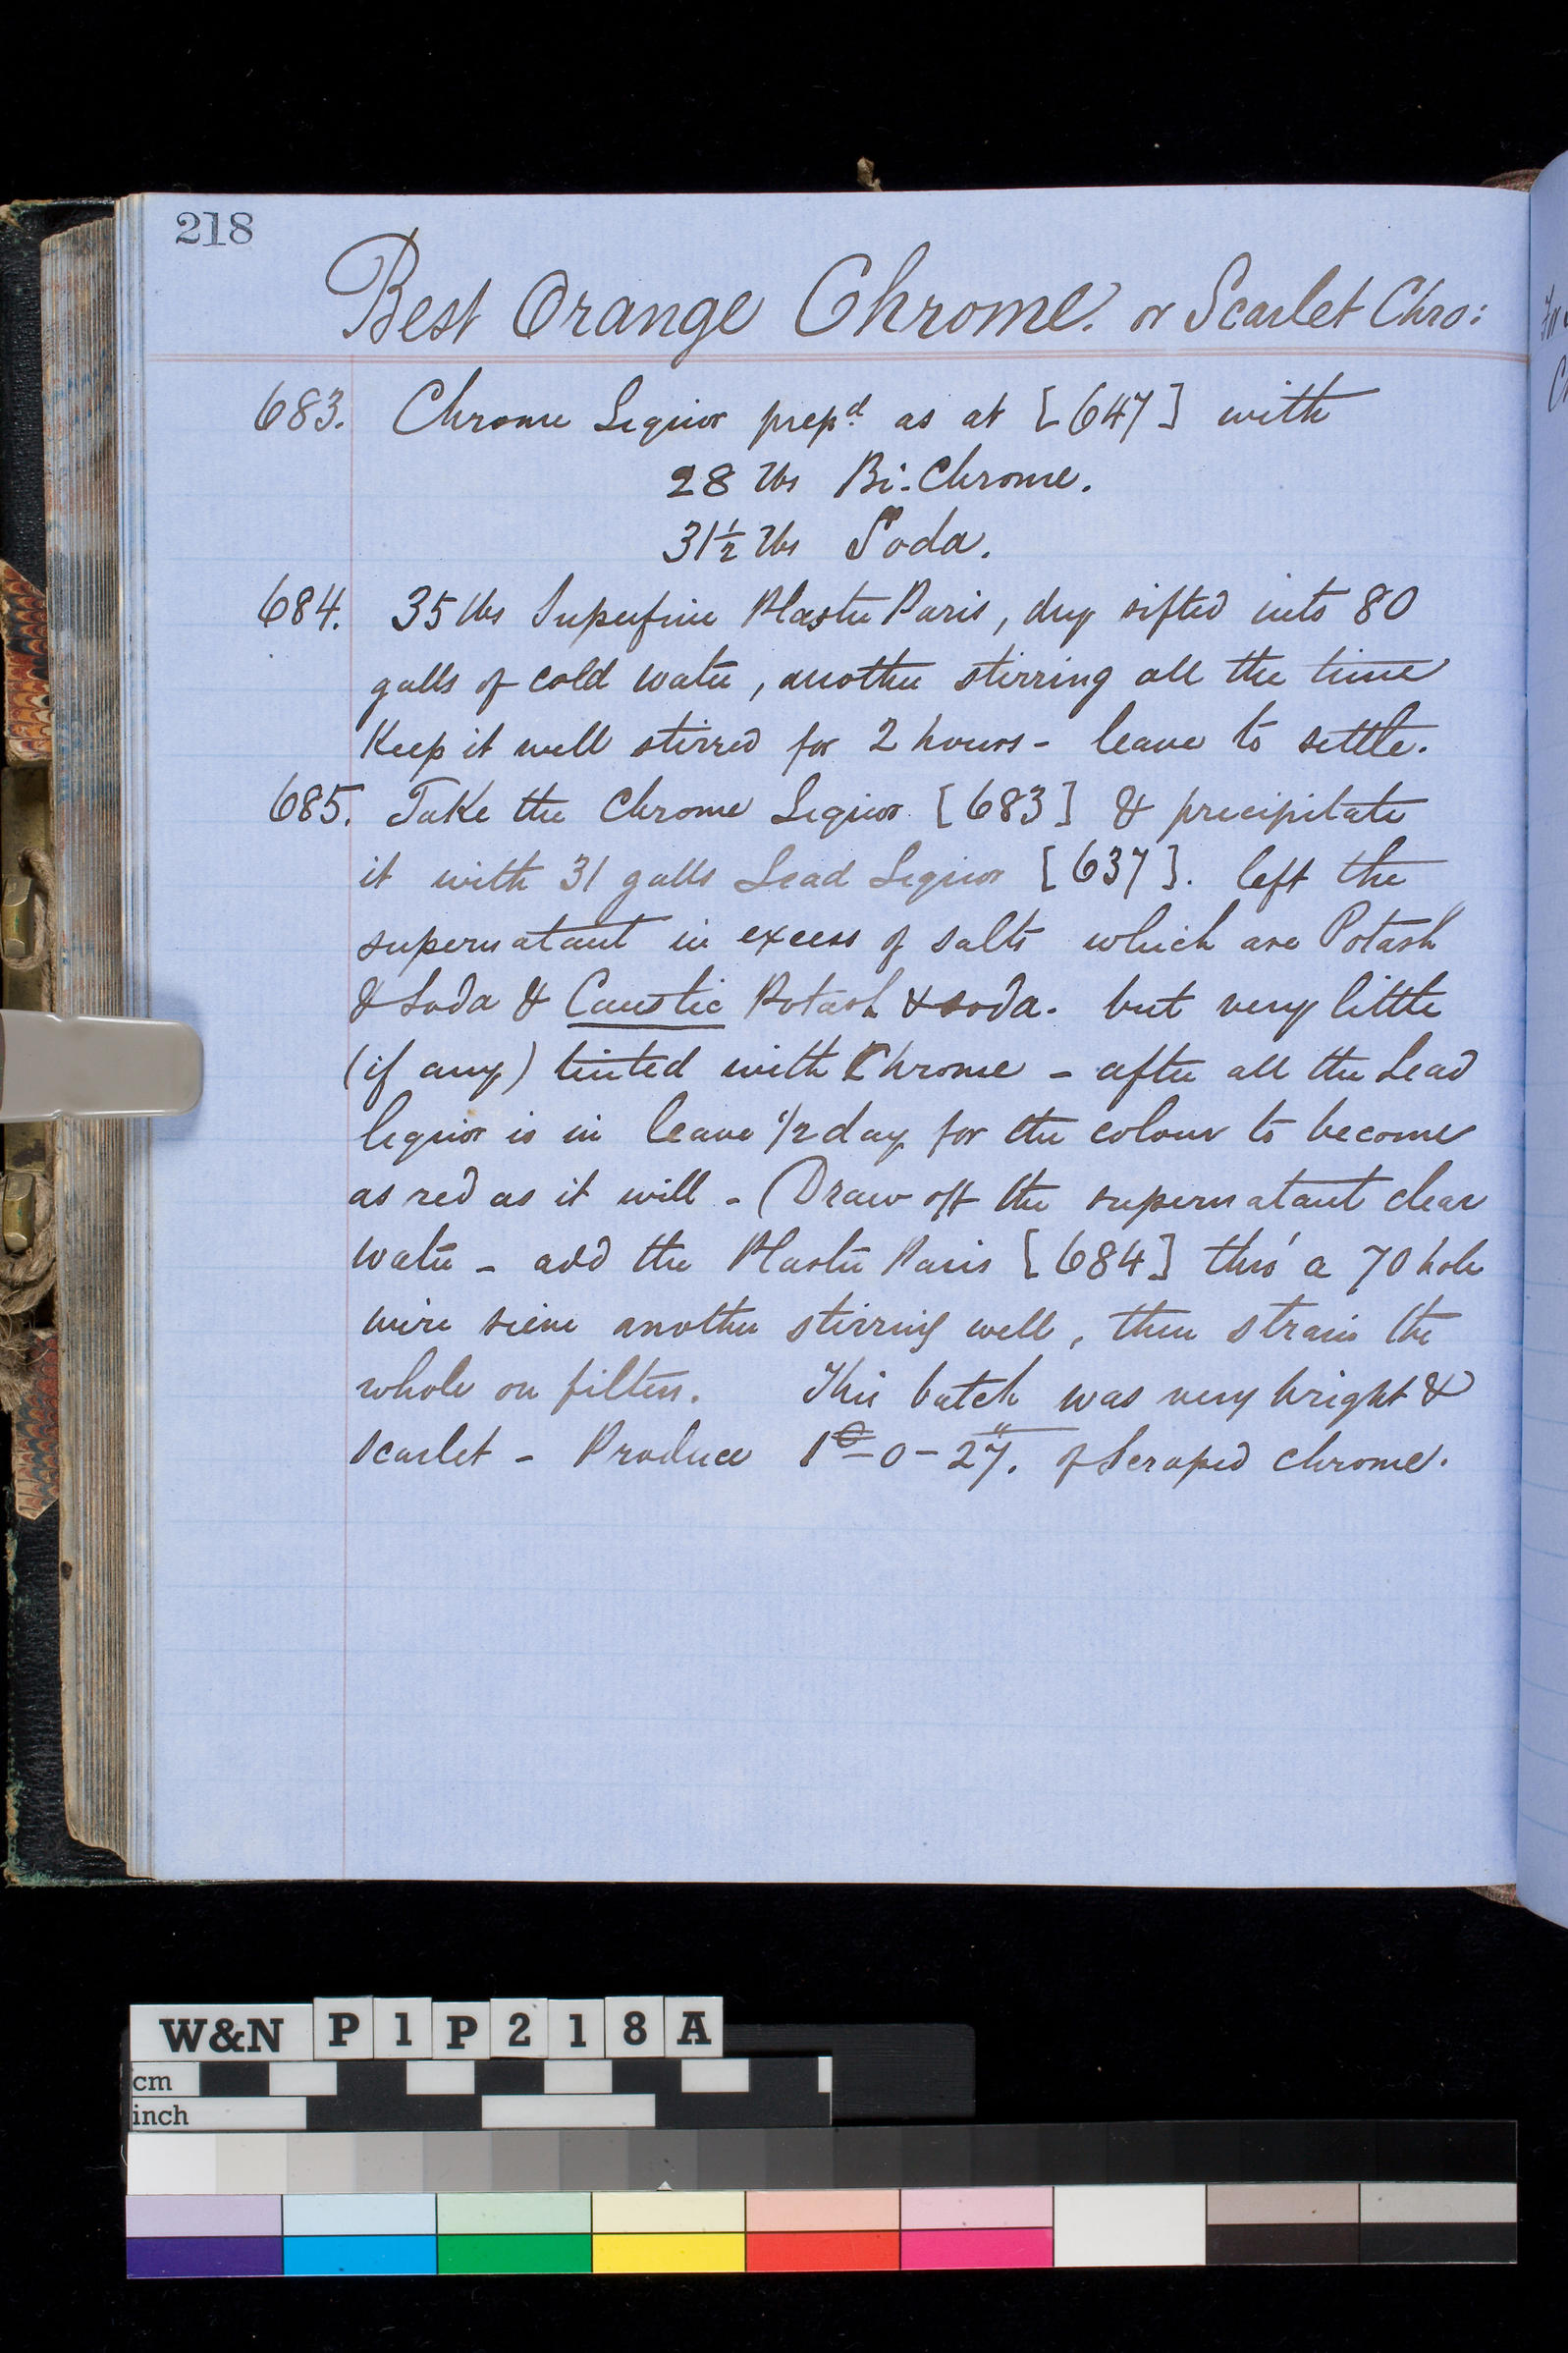 218
Best Orange Chrome. or Scarlet Chro:
683. Chrome Liquor prepd. as at [647] with
28 lbs Bi-Chrome.
31½ lbs Soda.
684. 35 lbs Superfine Plaster Paris, dry sifted into 80
galls of cold water, another stirring all the time
Keep it well stirred for 2 hours - leave to settle.
685. Take the Chrome Liquor [683] & precipitate
it with 31 galls Lead Liquor [637]. left the
supernatant in excess of salts which are Potash
& Soda & Caustic Potash & soda. but very little
(if any) tinted with Chrome - after all the Lead
liquor is in leave 1/2 day for the colour to become
as red as it will - (Draw off the supernatant clear
water - add the Plaster Paris [684] thro' a 70 hole
wire sieve another stirring well, then strain the
whole on filters. This batch was very bright &
scarlet - Produce 1C - 0 - 27. of Scraped chrome.
W&N P1P218A
cm
inch